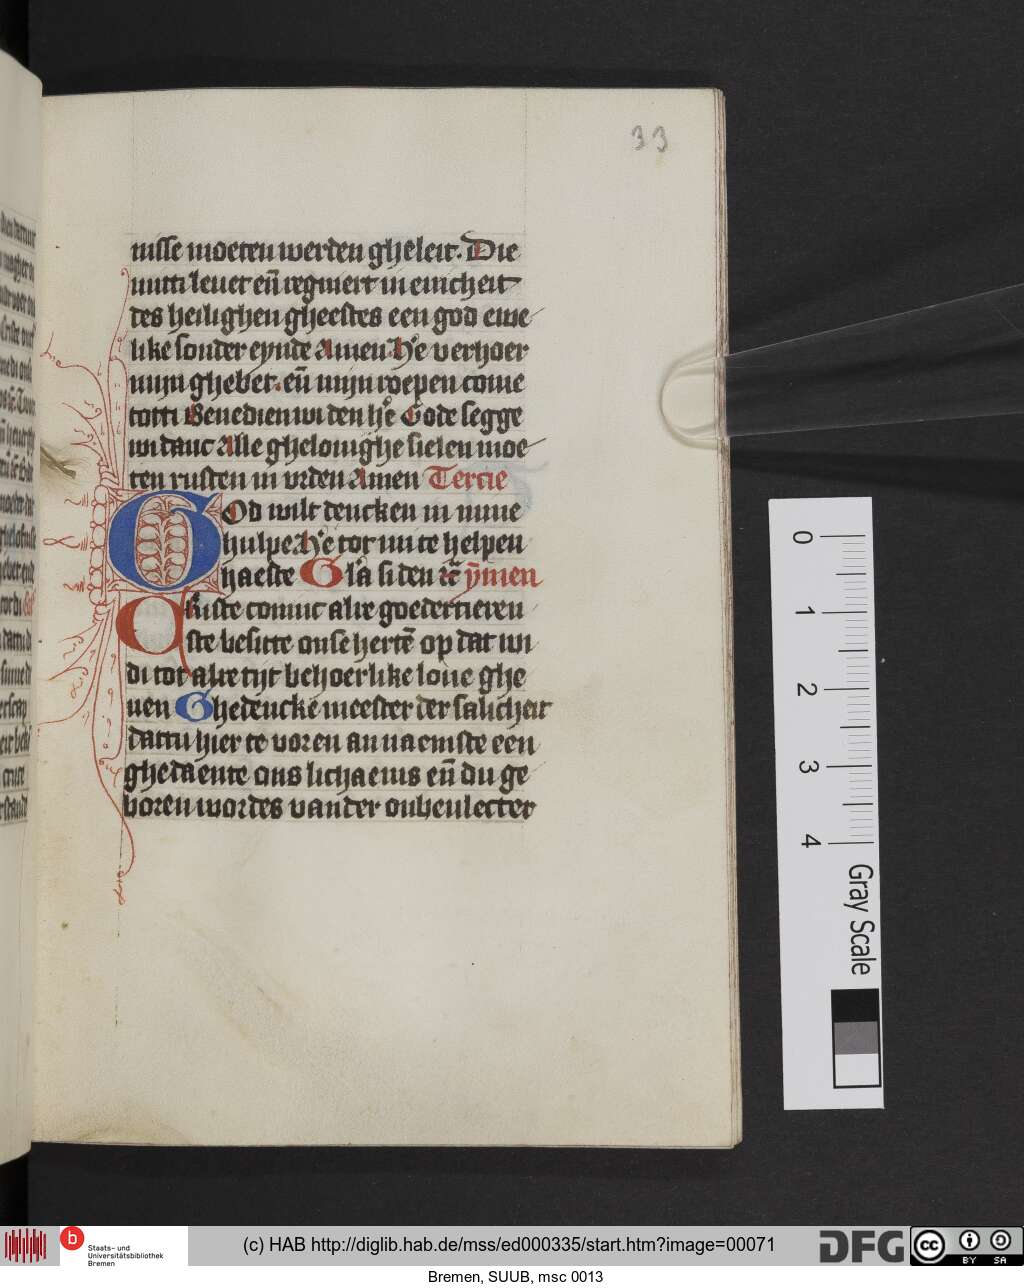 33
nisse moeten werden gheleit. Die
mitti leuet en̄ regniert in eincheit
des heilighen gheestes een god ewe
like sonder eynde Amen He verhoer
mijn ghebet. en̄ mijn roepen come
totti Benedien wi den he Gode segge
wi danc Alle ghelouighe sielen moe
ten rusten in vrden Amen Tercie
God wilt dencken in mine
hulpe He tot mi te helpen
haeste Gl'a si den ⁊c̄ ym̄en
Criste comt alre goedertieren
ste besitte onse hertē op dat wi
di tot alre tijt behoerlike loue ghe
uen Ghedencke meester der salicheit
dattu hier te voren annaemste een
ghedaente ons lichaems en̄ du ge
boren wordes vander onbeulecter
0
1
2
3
4
Gray Scale
b
Staats- und
Universitätsbibliothek
Bremen
(c) HAB http://diglib.hab.de/mss/ed000335/start.htm?image=00071
DFG
cc
BY SA
Bremen, SUUB, msc 0013